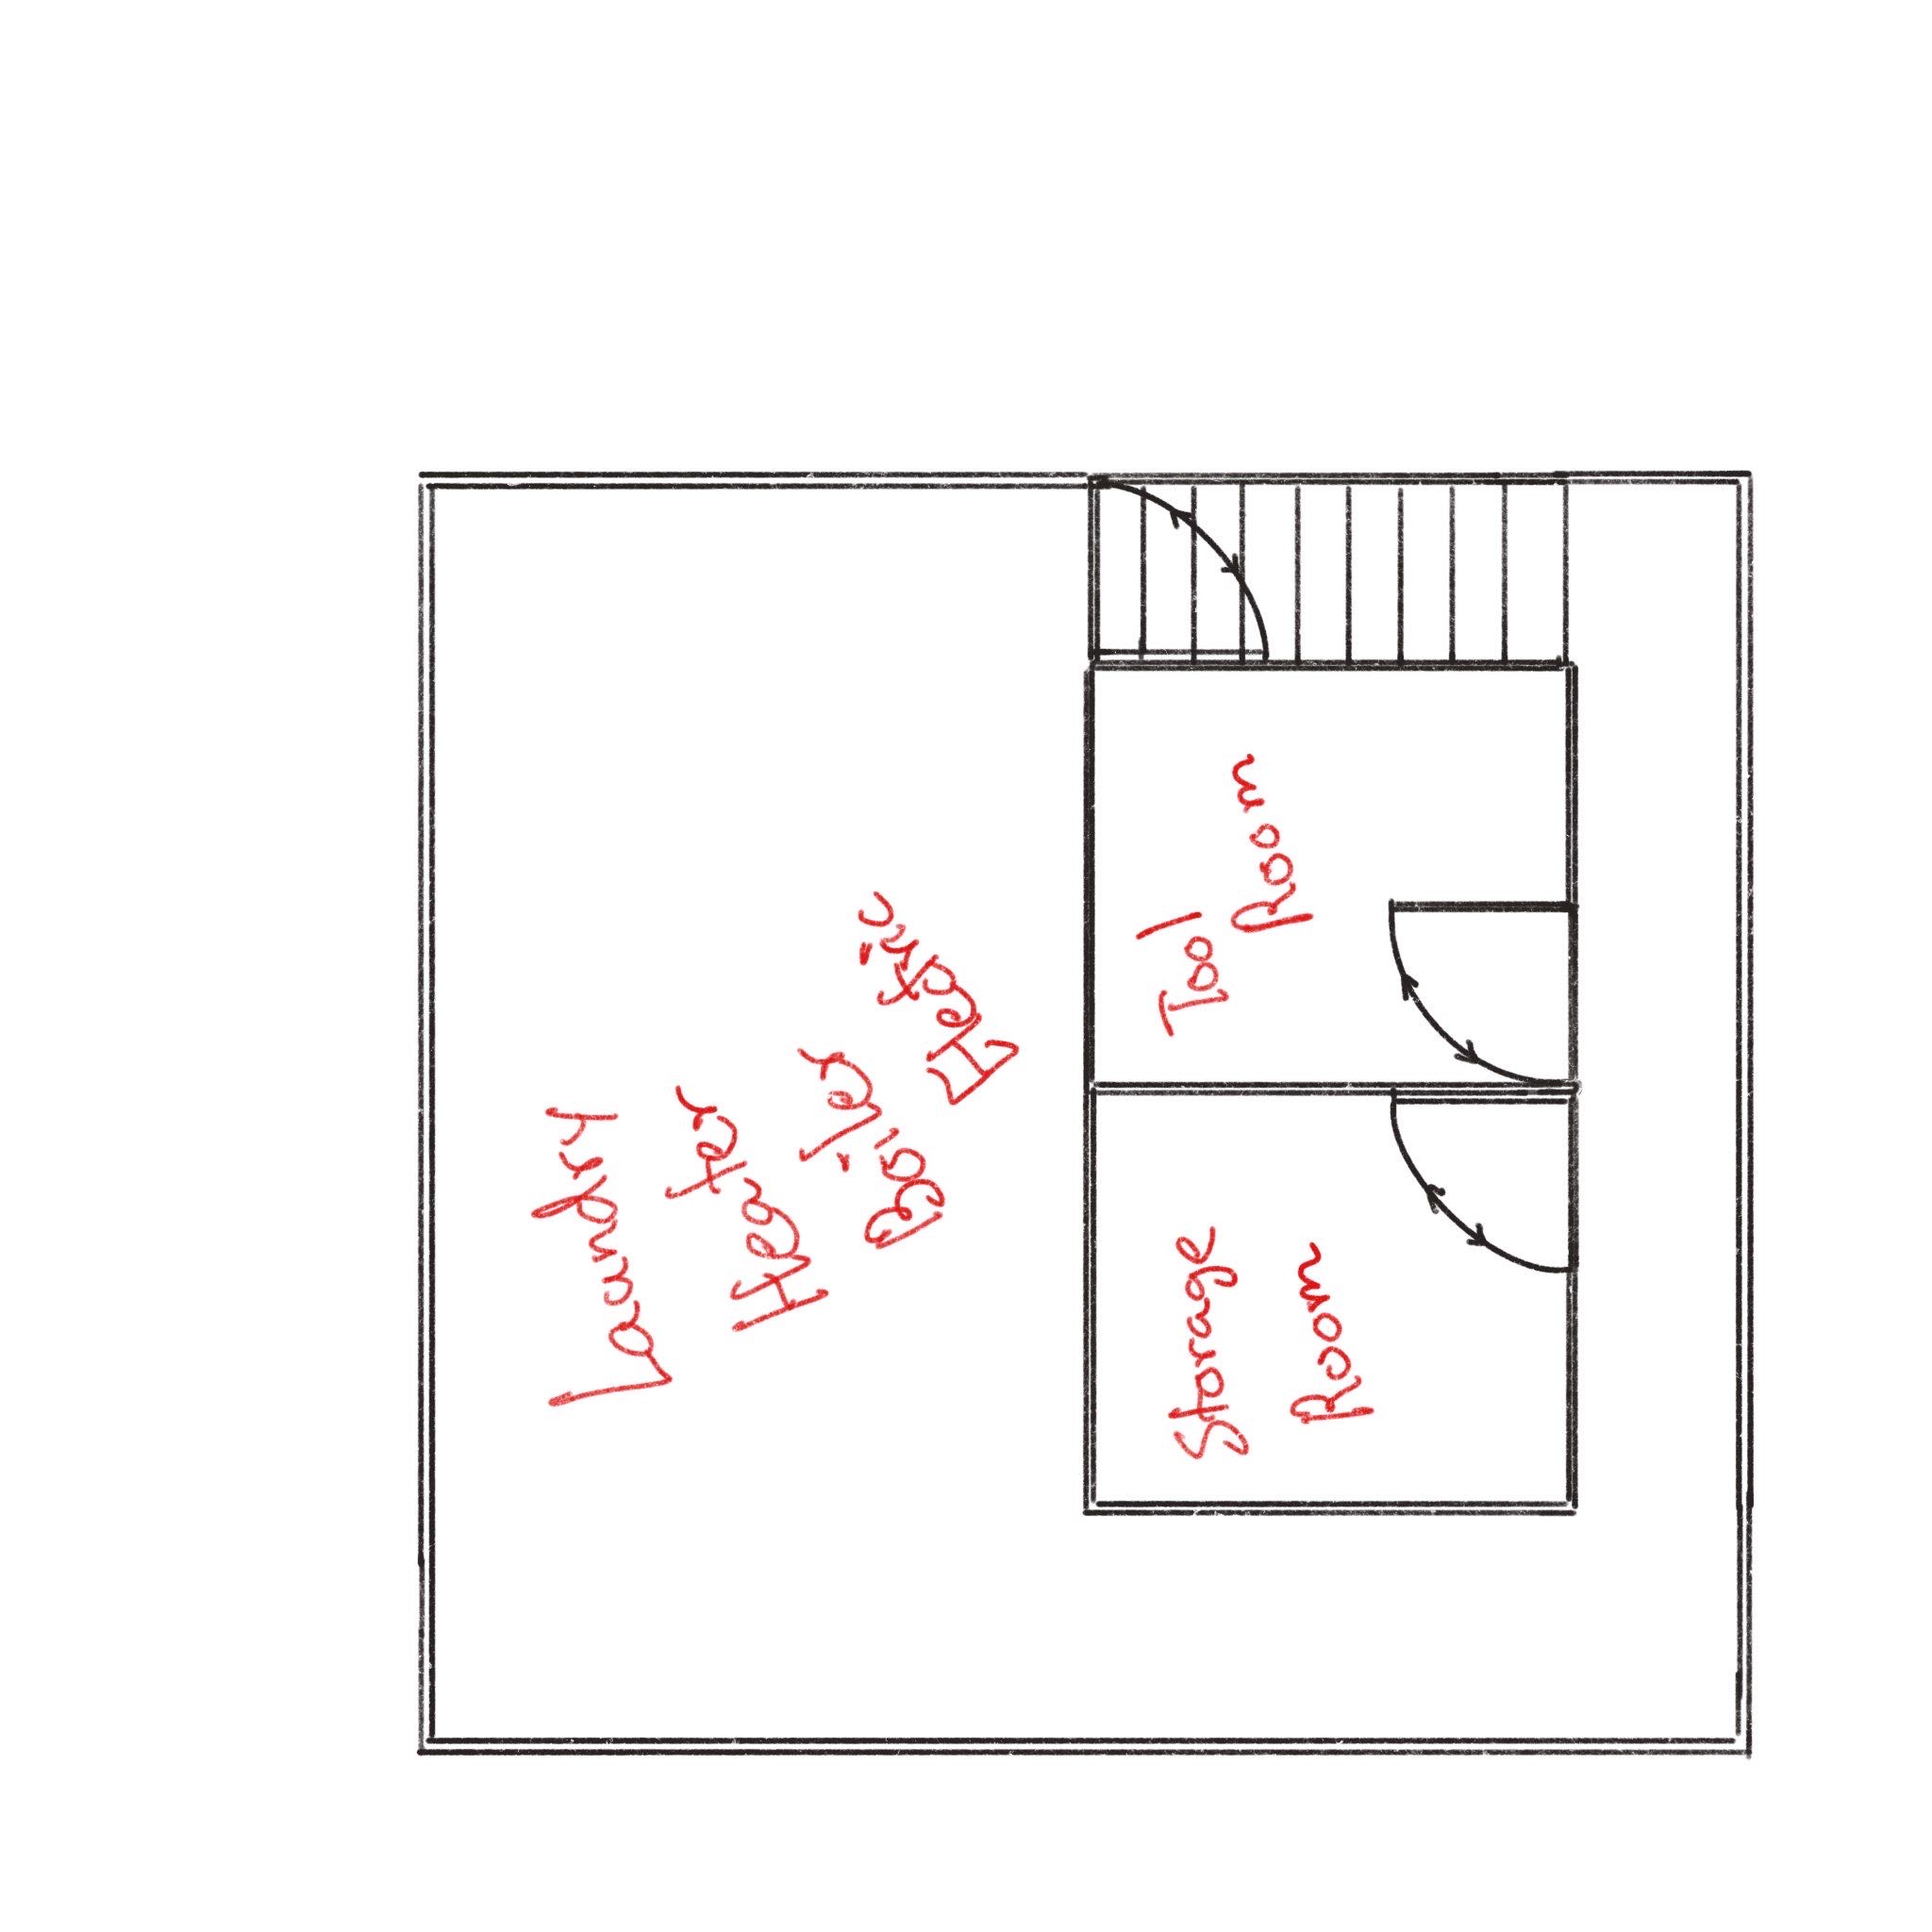 Laundry
Heater
Boiler
Electric
Tool
Room
Storage
Room